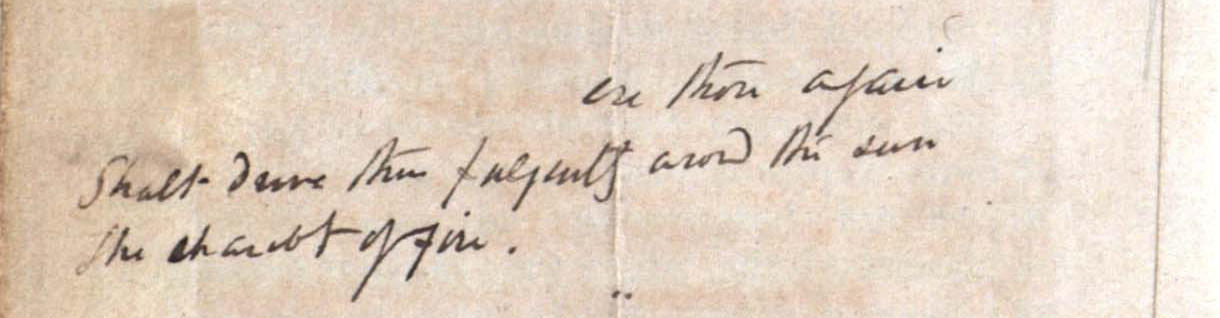 ere thou again
Shalt drive thus fulgently around the sun
The chariot of fire.